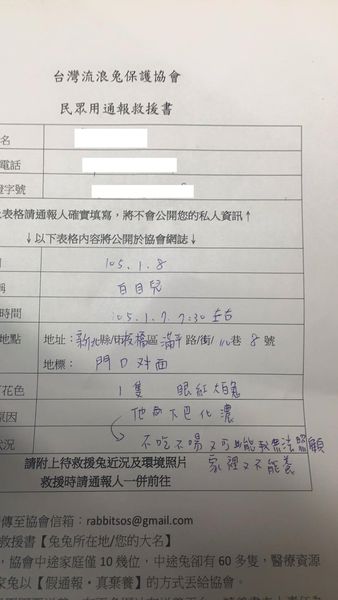 台灣流浪兔保護協會
民眾用通報救援書
名
電話
證字號
表格請通報人確實填寫，將不會公開您的私人資訊↑
↓以下表格內容將公開於協會網誌↓
105.1.8
稱 白目兒
時間 105.1.7. 7:30左右
地點 地址：新北縣/市板橋區滿平路/街/ 巷 8 號
地標： 門口對面
花色 1隻 眼紅大白兔
原因 他的下巴化濃
狀況 不吃不喝又可能較無法照顧
家裡又不能養
請附上待救援兔近況及環境照片
救援時請通報人一併前往
傳至協會信箱：rabbitsos@gmail.com
救援書【兔兔所在地/您的大名】
，協會中途家庭僅 10 幾位，中途兔卻有 60 多隻，醫療資源
家兔以【假通報‧真棄養】的方式丟給協會。